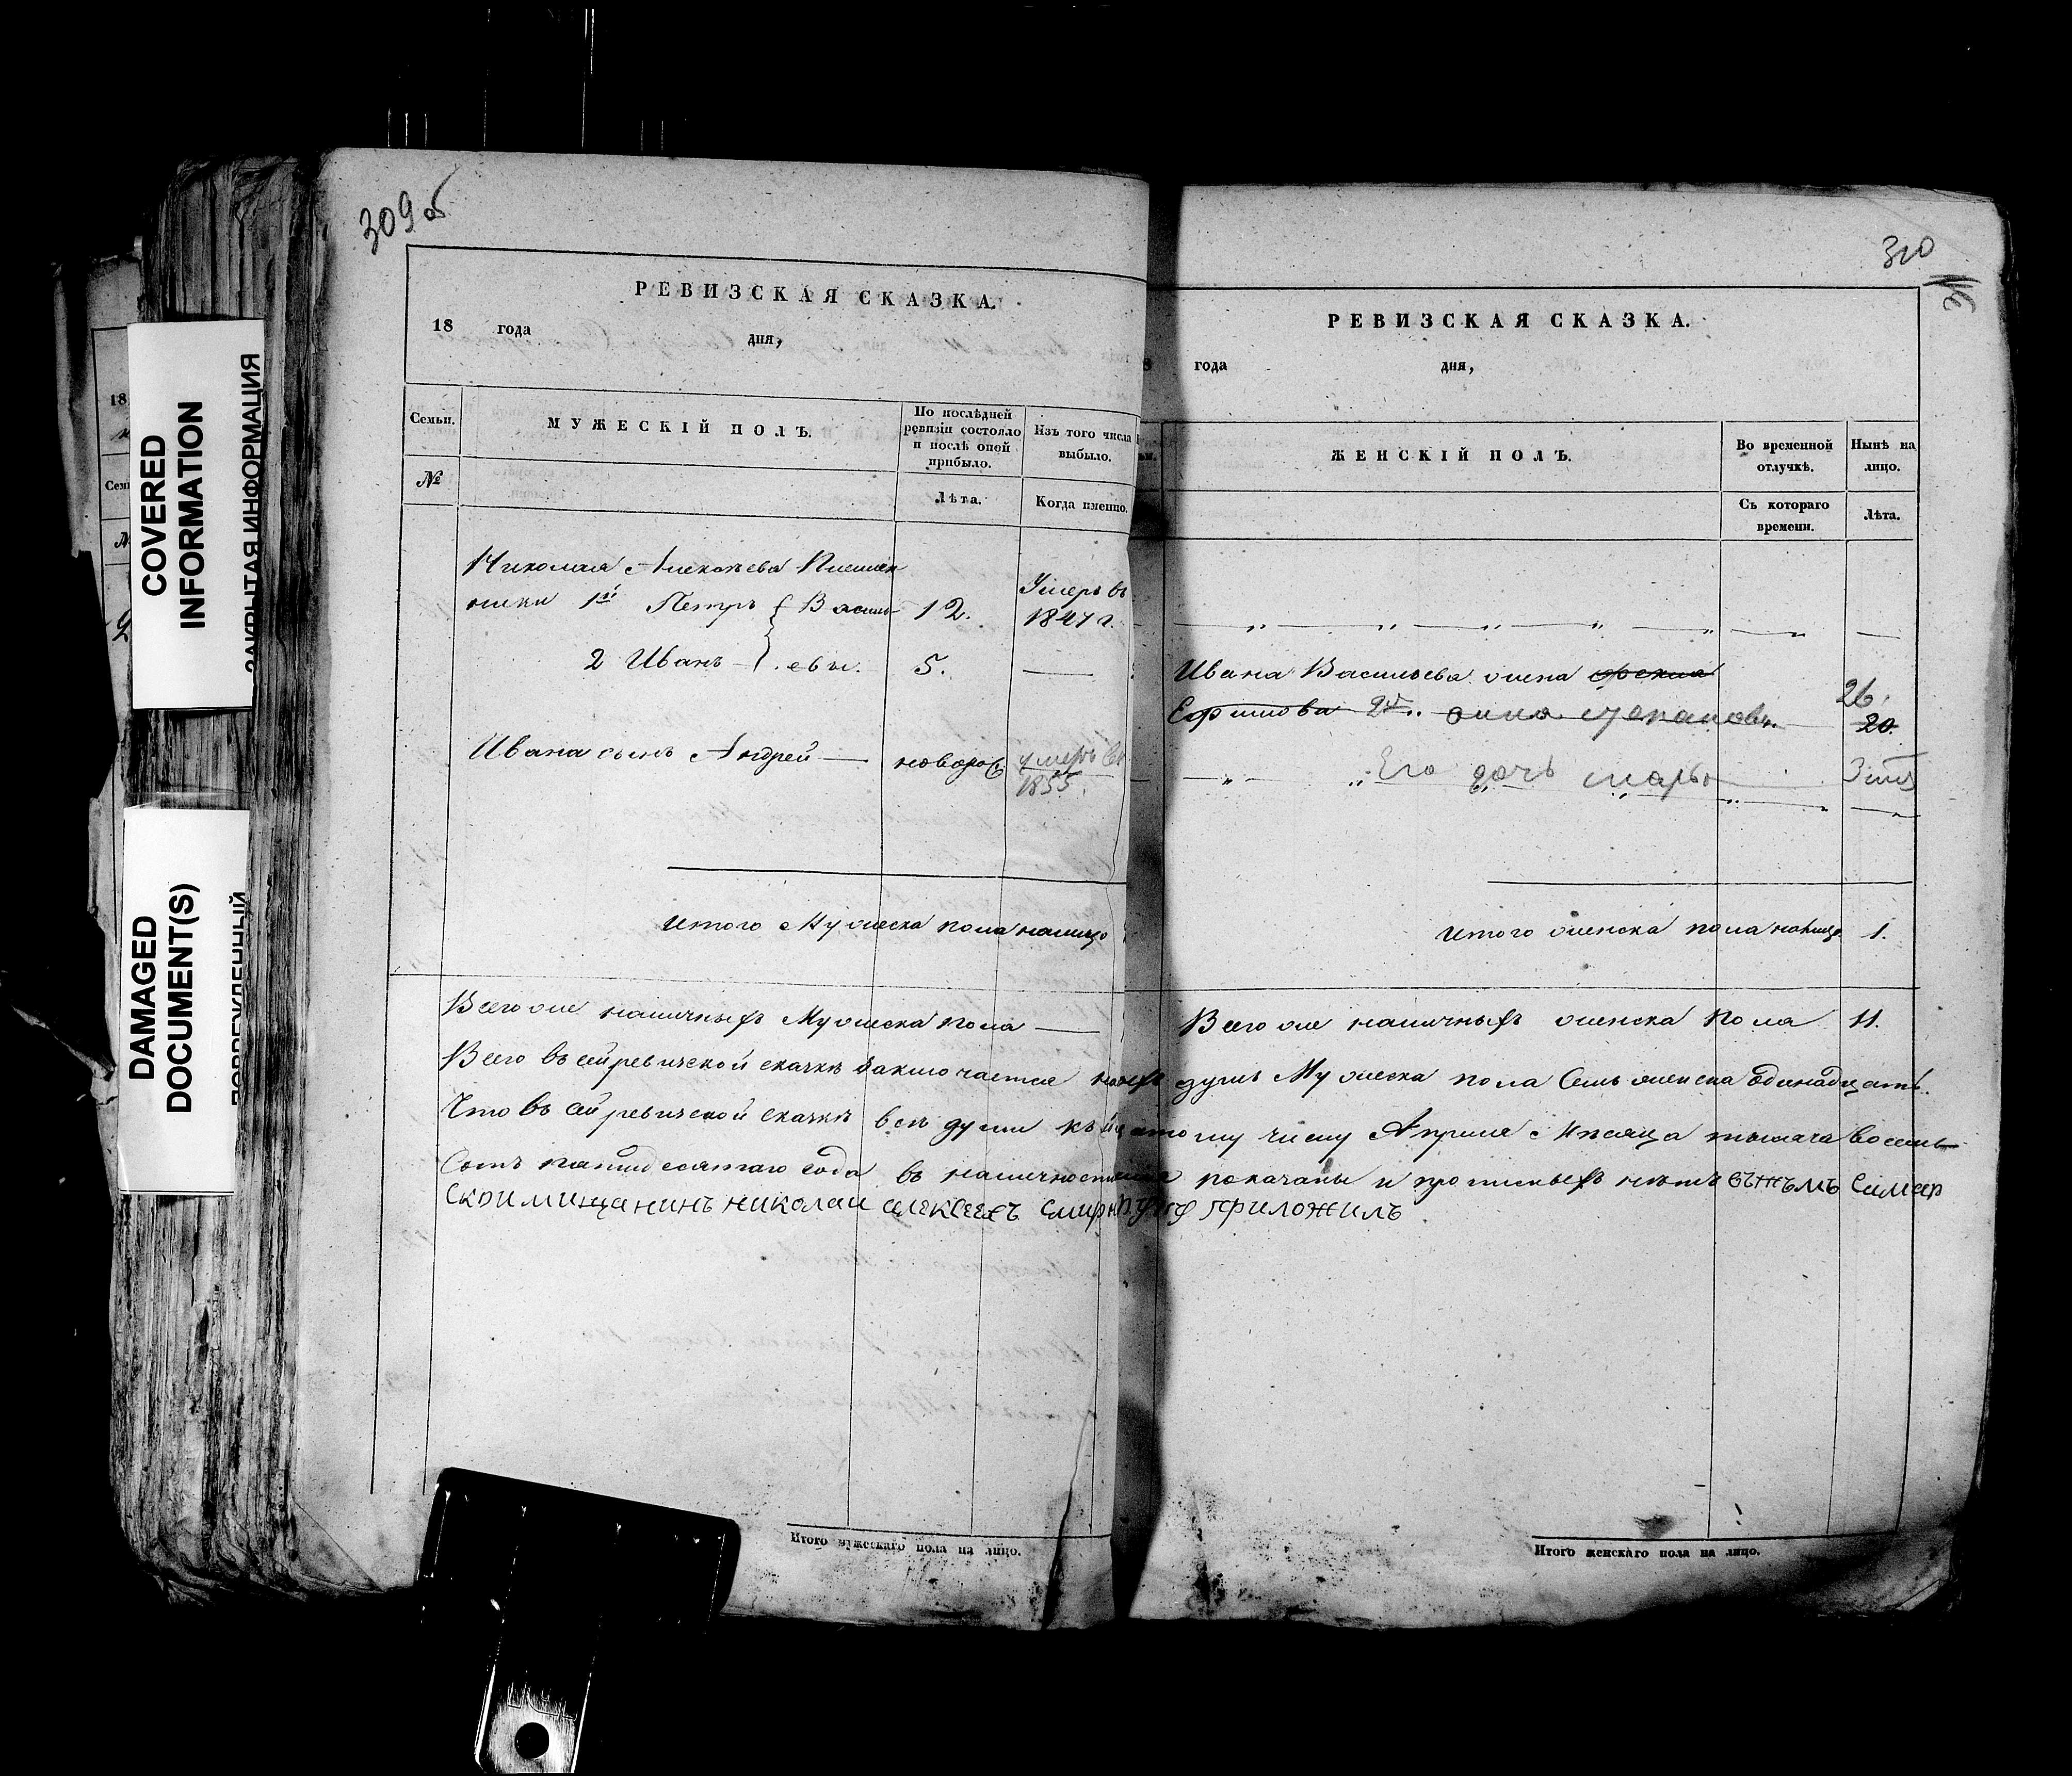 COVERED
INFORMATION
ЗАКРЫТАЯ ИНФОРМАЦИЯ
DAMAGED
DOCUMENT(S)
309 об
РЕВИЗСКАЯ СКАЗКА.
18 года дня,
Семьи.
МУЖЕСКІЙ ПОЛЪ.
По послѣдней
ревизіи состояло
и послѣ оной
прибыло.
Изъ того числа
выбыло.
№
Лѣта.
Когда именно.
Николая Алексѣева Племян
ники 1й Петръ Василь- 12. Умеръ въ
1847 г.
2 Иванъ — евы. 5. —
Ивана сынъ Андрей — новорож умеръ въ
1855.
Итого Мужеска пола налицо
Всего же наличныхъ Мужеска пола —
310
РЕВИЗСКАЯ СКАЗКА.
года дня,
ЖЕНСКІЙ ПОЛЪ.
Во временной
отлучкѣ.
Нынѣ на
лицо.
Съ котораго
времени.
Лѣта.
Ивана Васильева жена
Ефимова 2й Анна Степановъ. 26.
20.
Его дочь Марья 3
Итого женска пола налицо. 1.
Всего же наличныхъ женска пола 11.
Всего въ сей ревизской сказкѣ заключается душъ Мужеска пола Семь женска одинадцать.
Что въ сей ревизской сказкѣ всѣ души къ числу Апрѣля Мѣсяца тысяча восемь
Сотъ пятидесятаго года въ наличности показаны и прописныхъ нѣтъ Симбир
Скои мищанинъ николаи алексеевъ руку приложилъ
Итого мужескаго пола на лицо.
Итого женскаго пола на лицо.